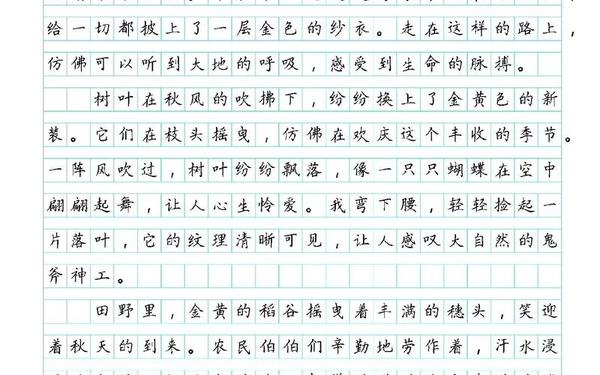 给一切都披上了一层金色的纱衣。走在这样的路上，
仿佛可以听到大地的呼吸，感受到生命的脉搏。
树叶在秋风的吹拂下，纷纷换上了金黄色的新
装。它们在枝头摇曳，仿佛在欢庆这个丰收的季节。
一阵风吹过，树叶纷纷飘落，像一只只蝴蝶在空中
翩翩起舞，让人心生怜爱。我弯下腰，轻轻捡起一
片落叶，它的纹理清晰可见，让人感叹大自然的鬼
斧神工。
田野里，金黄的稻谷摇曳着丰满的穗头，笑迎
着秋天的到来。农民伯伯们辛勤地劳作着，汗水浸